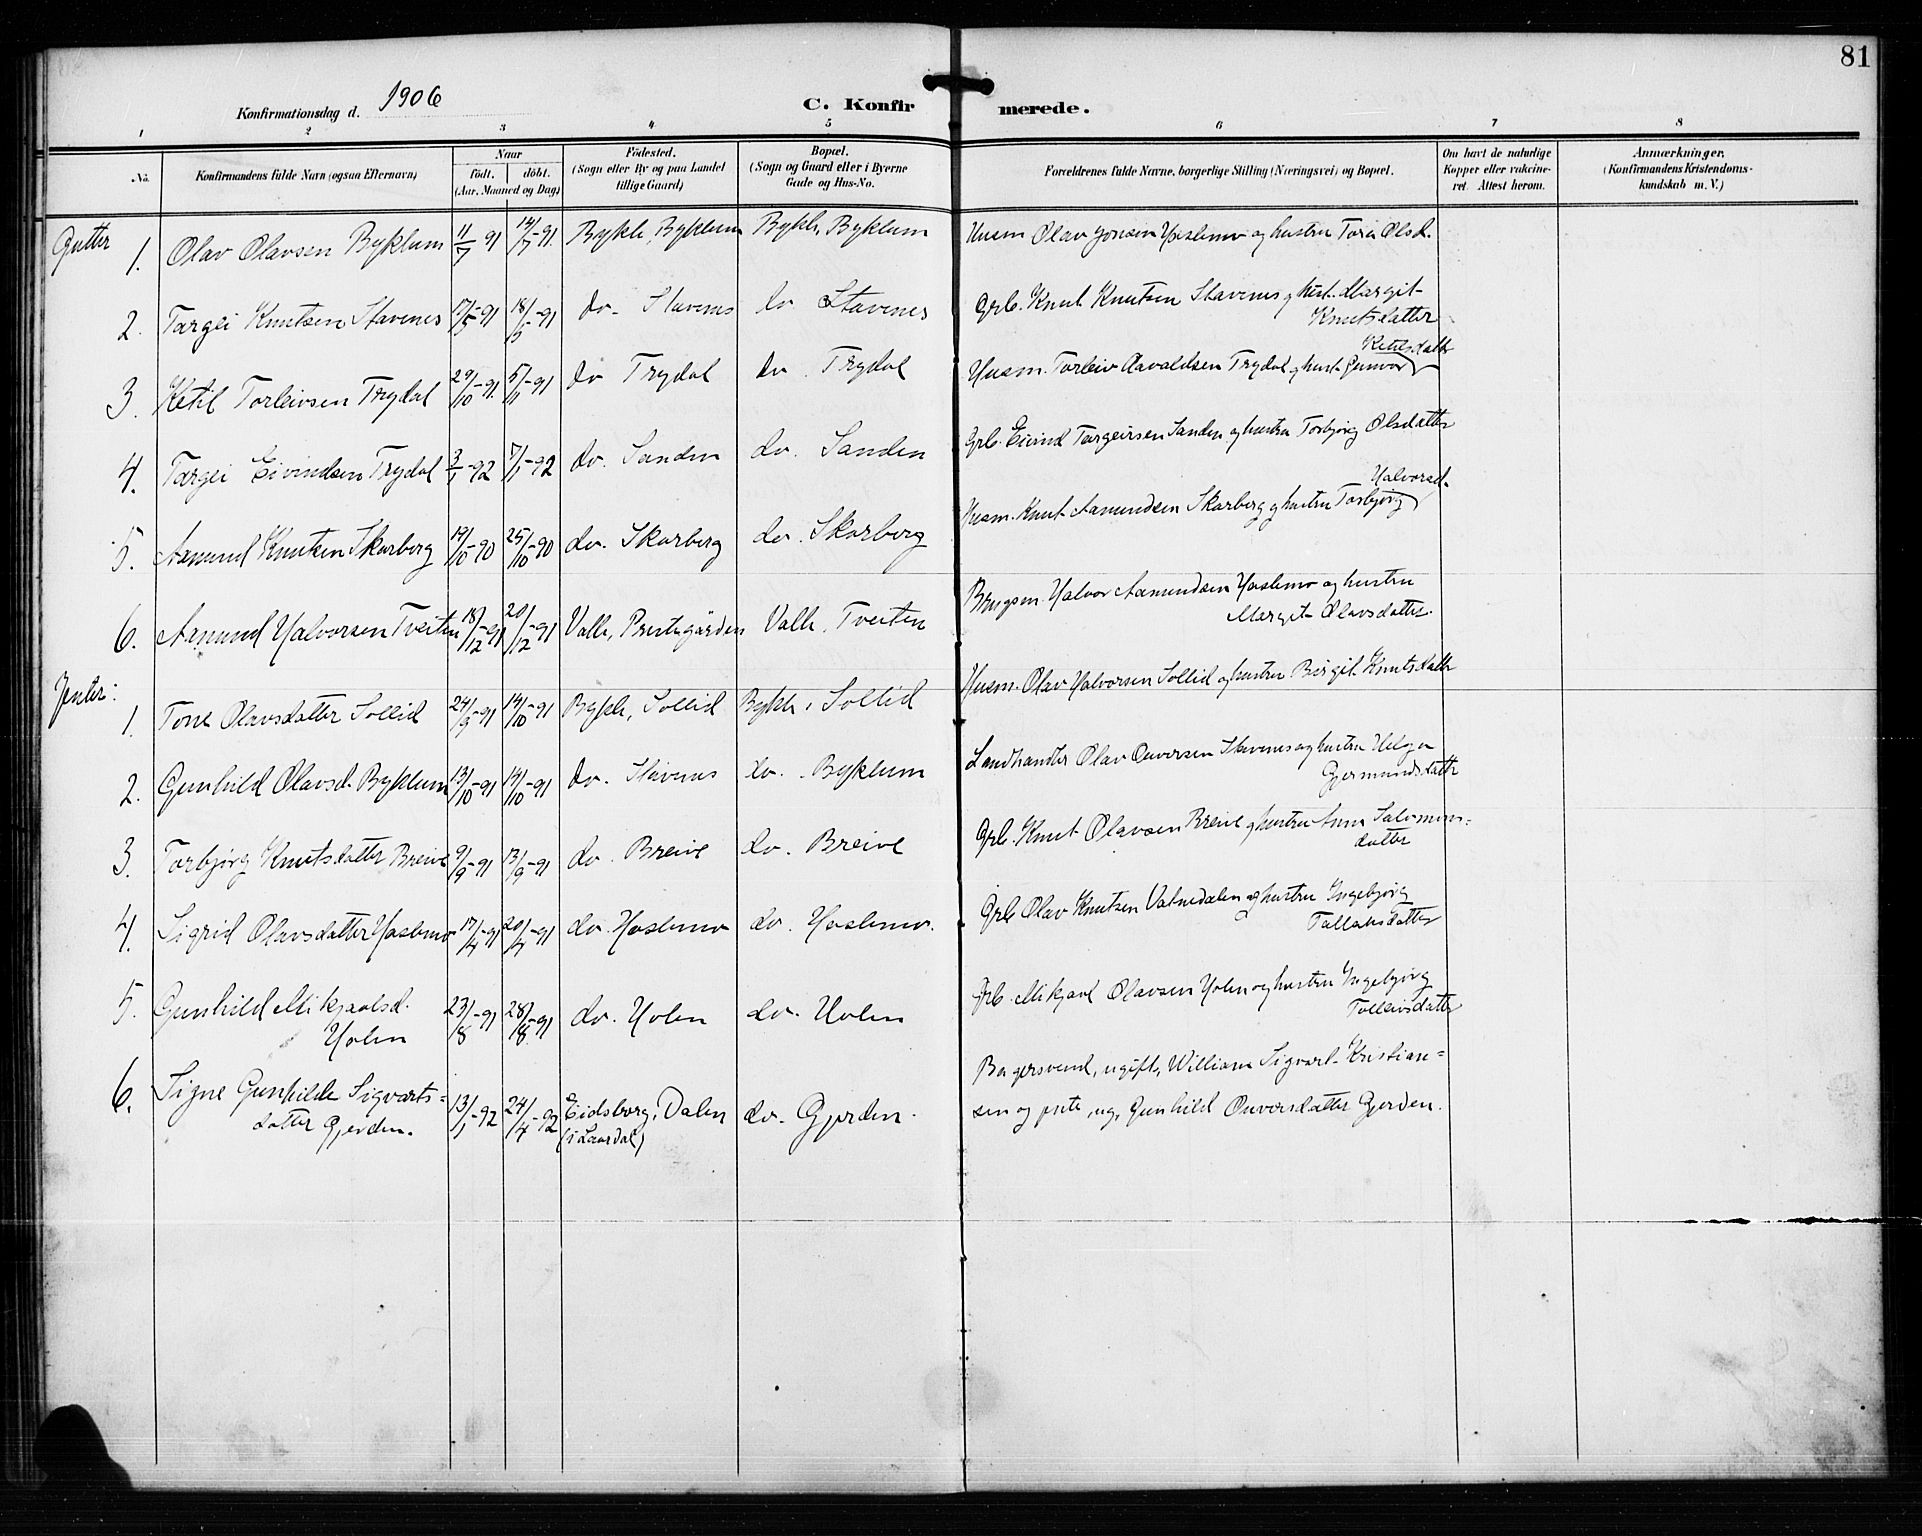 81
Konfirmationsdag d. 1906
C. Konfirmerede.
1 2 3 4 5 6 7 8
No. Konfirmandens fulde Navn (ogsaa Efternavn) Naar födt. döbt. (Aar, Maaned og Dag) Födested. (Sogn eller By og paa Landet tillige Gaard) Bopæl. (Sogn og Gaard eller i Byerne Gade og Hus-No. Forældrenes fulde Navne, borgerlige Stilling (Næringsvei) og Bopæl. Om havt de naturlige Kopper eller vakcineret. Attest herom. Anmærkninger. (Konfirmandens Kristendomskundskab m. V.)
Gutter 1. Olav Olavsen Byklum 11/7-91 14/7-91. Bykle, Byklum Bykle, Byklum Husm Olav Jonsen Hoslemo og hustru Olsd.
2. Targei Knutsen Stavenes 17/5-91 18/5-91 do. Stavenes do Stavenes Grb. Knut Knutsen Stavenes og hust. Margit
Knutsdatter
3. Ketil Torleivsen Trydal 29/10-91. 5/11-91 do Trydal do. Trydal Husm. Torleiv Aavaldsen Trydal og hust. Gunvor
Ketilsdattr
4. Targei Eivindsen Trydal 3/1-92 7/1-92 do. Sanden do. Sanden Grb. Eivind Targeirsen Sanden og hustru Torbjørg Olsdatter
5. Aamund Knutsen Skarberg 19/10-90 25/10-90 do. Skarberg do. Skarberg Husm. Knut Aamundsen Skarberg og hustru Torbjørg
Halvorsd.
6. Aamund Halvorsen Tveiten 18/12-91 20/12-91 Valle, Prestegården Valle, Tveiten Brugsm. Halvor Aamundsen Hoslemo og hustru
Margit Olavsdatter.
Jenter: 1. Tone Olavsdatter Sollid 24/9-91 14/10-91 Bykle, Sollid Bykle, Sollid Husm. Olav Halvorsen Sollid og hustru Birgit Knutsdattr
2. Gunhild Olavsd. Byklum 13/10-91 14/10-91 do. Stavenes do. Byklum Landhandler Olav Onversen Stavenes og hustru Helga
Gjermundsdattr
3. Torbjørg Knutsdatter Breive 9/9-91 13/9-91 do. Breive do. Breive Grb. Knut Olavsen Breive og hustru Anne Salomons-
datter
4. Sigrid Olavsdatter Hoslemo 17/4-91 20/4-91 do. Hoslemo do. Hoslemo. Grb Olav Knutsen Vatnedalen og hustru Ingebjørg
Tallaksdatter
5. Gunhild Mikjaalsd. 23/8-91 28/8-91 do. Holen do. Holen Grb. Mikjaal Olavsen Holen og hustru Ingebjørg
Holen Tolleivsdattr
6. Signe Gunhilde Sigvarts- 13/1-92 24/4-92 Eidsborg, Dalen do. Gjerden. Bagersvend, ugift, William Sigvart Kristian-
datter Gjerden. (i Laardal) sen og pike, ug. Gunhild Onversdatter Gjerden.